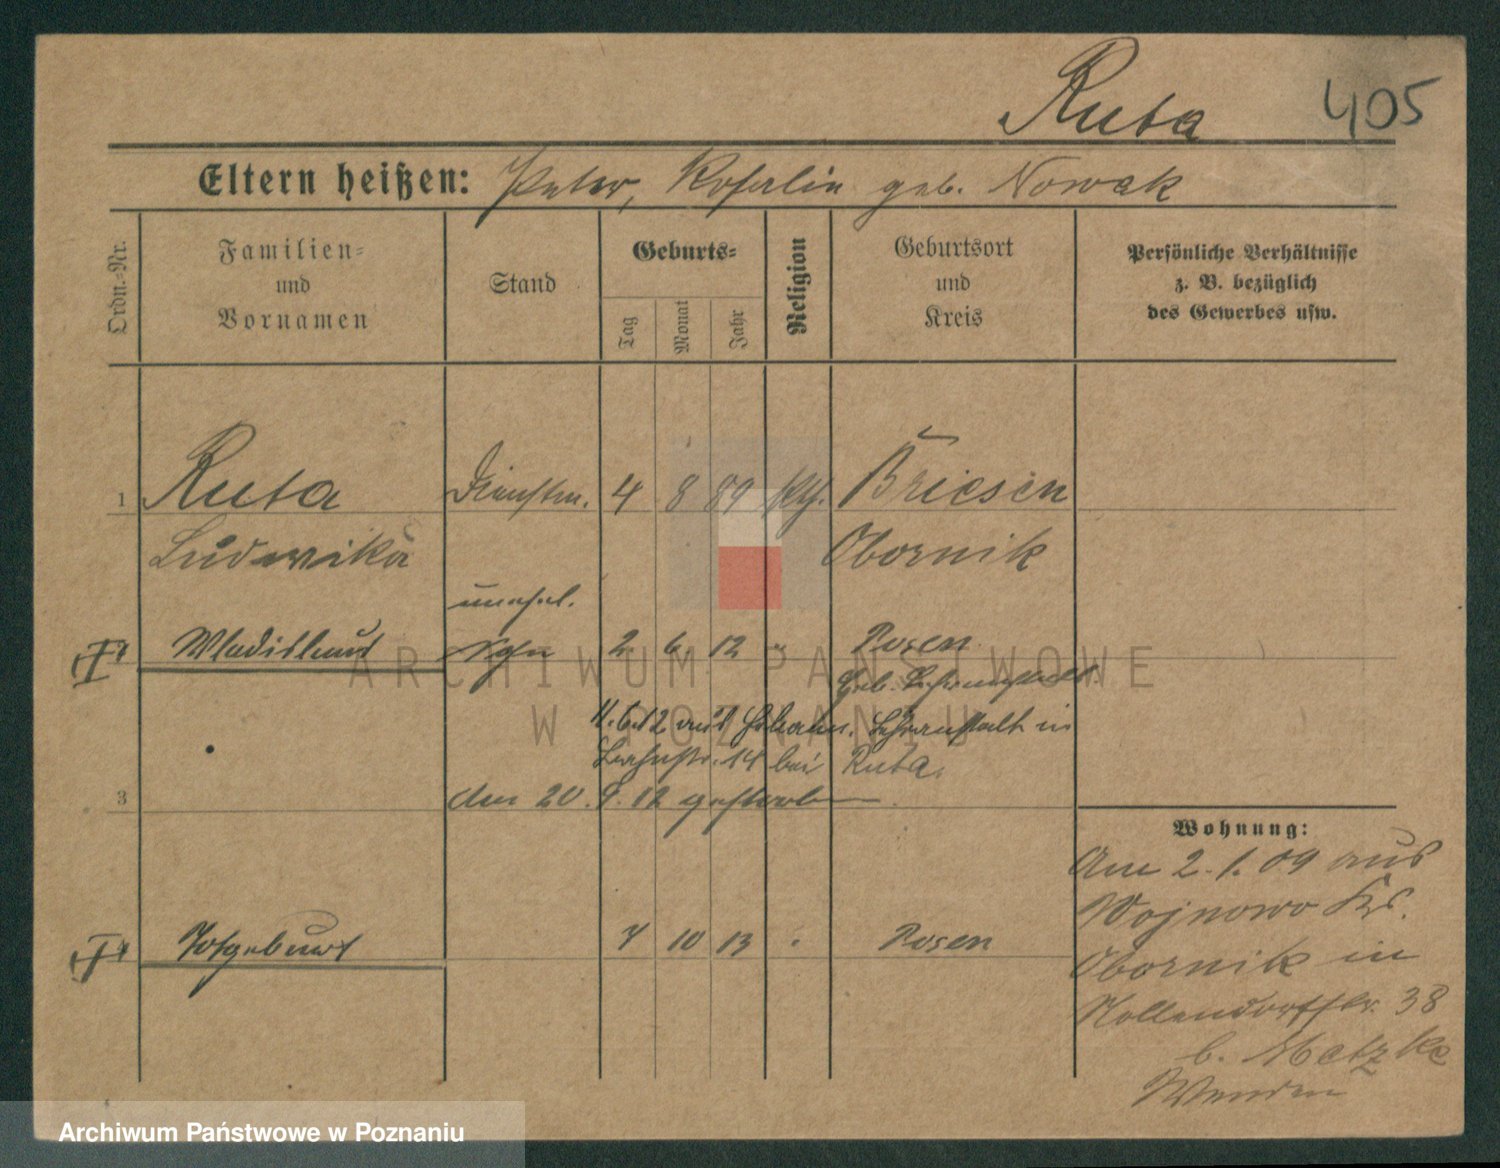 Ruta 405
Eltern heißen: Peter, Rosalie geb. Nowak
Ordn.-Nr.
Familien-
und
Vornamen
Stand
Geburts-
Tag
Monat
Jahr
Religion
Geburtsort
und
Kreis
Persönliche Verhältnisse
z. B. bezüglich
des Gewerbes usw.
1 Ruta Dienstm. 4 8 89 Kth. Briesen
Ludowika Obornik
unehel.
Wladislaus Sohn 2 6 12 " Posen
Geb.
11.6.12 aus Hebam. Lehranstalt in
14 bei Ruta.
3 den 20. 9. 12 gestorben
Totgeburt 7 10 13 " Posen
Wohnung:
Am 2.1.09 aus
Wojnowo Krs.
Obornik in
Nollendorfstr. 38
b. Metzke
ARCHIWUM PAŃSTWOWE
W POZNANIU
Archiwum Państwowe w Poznaniu